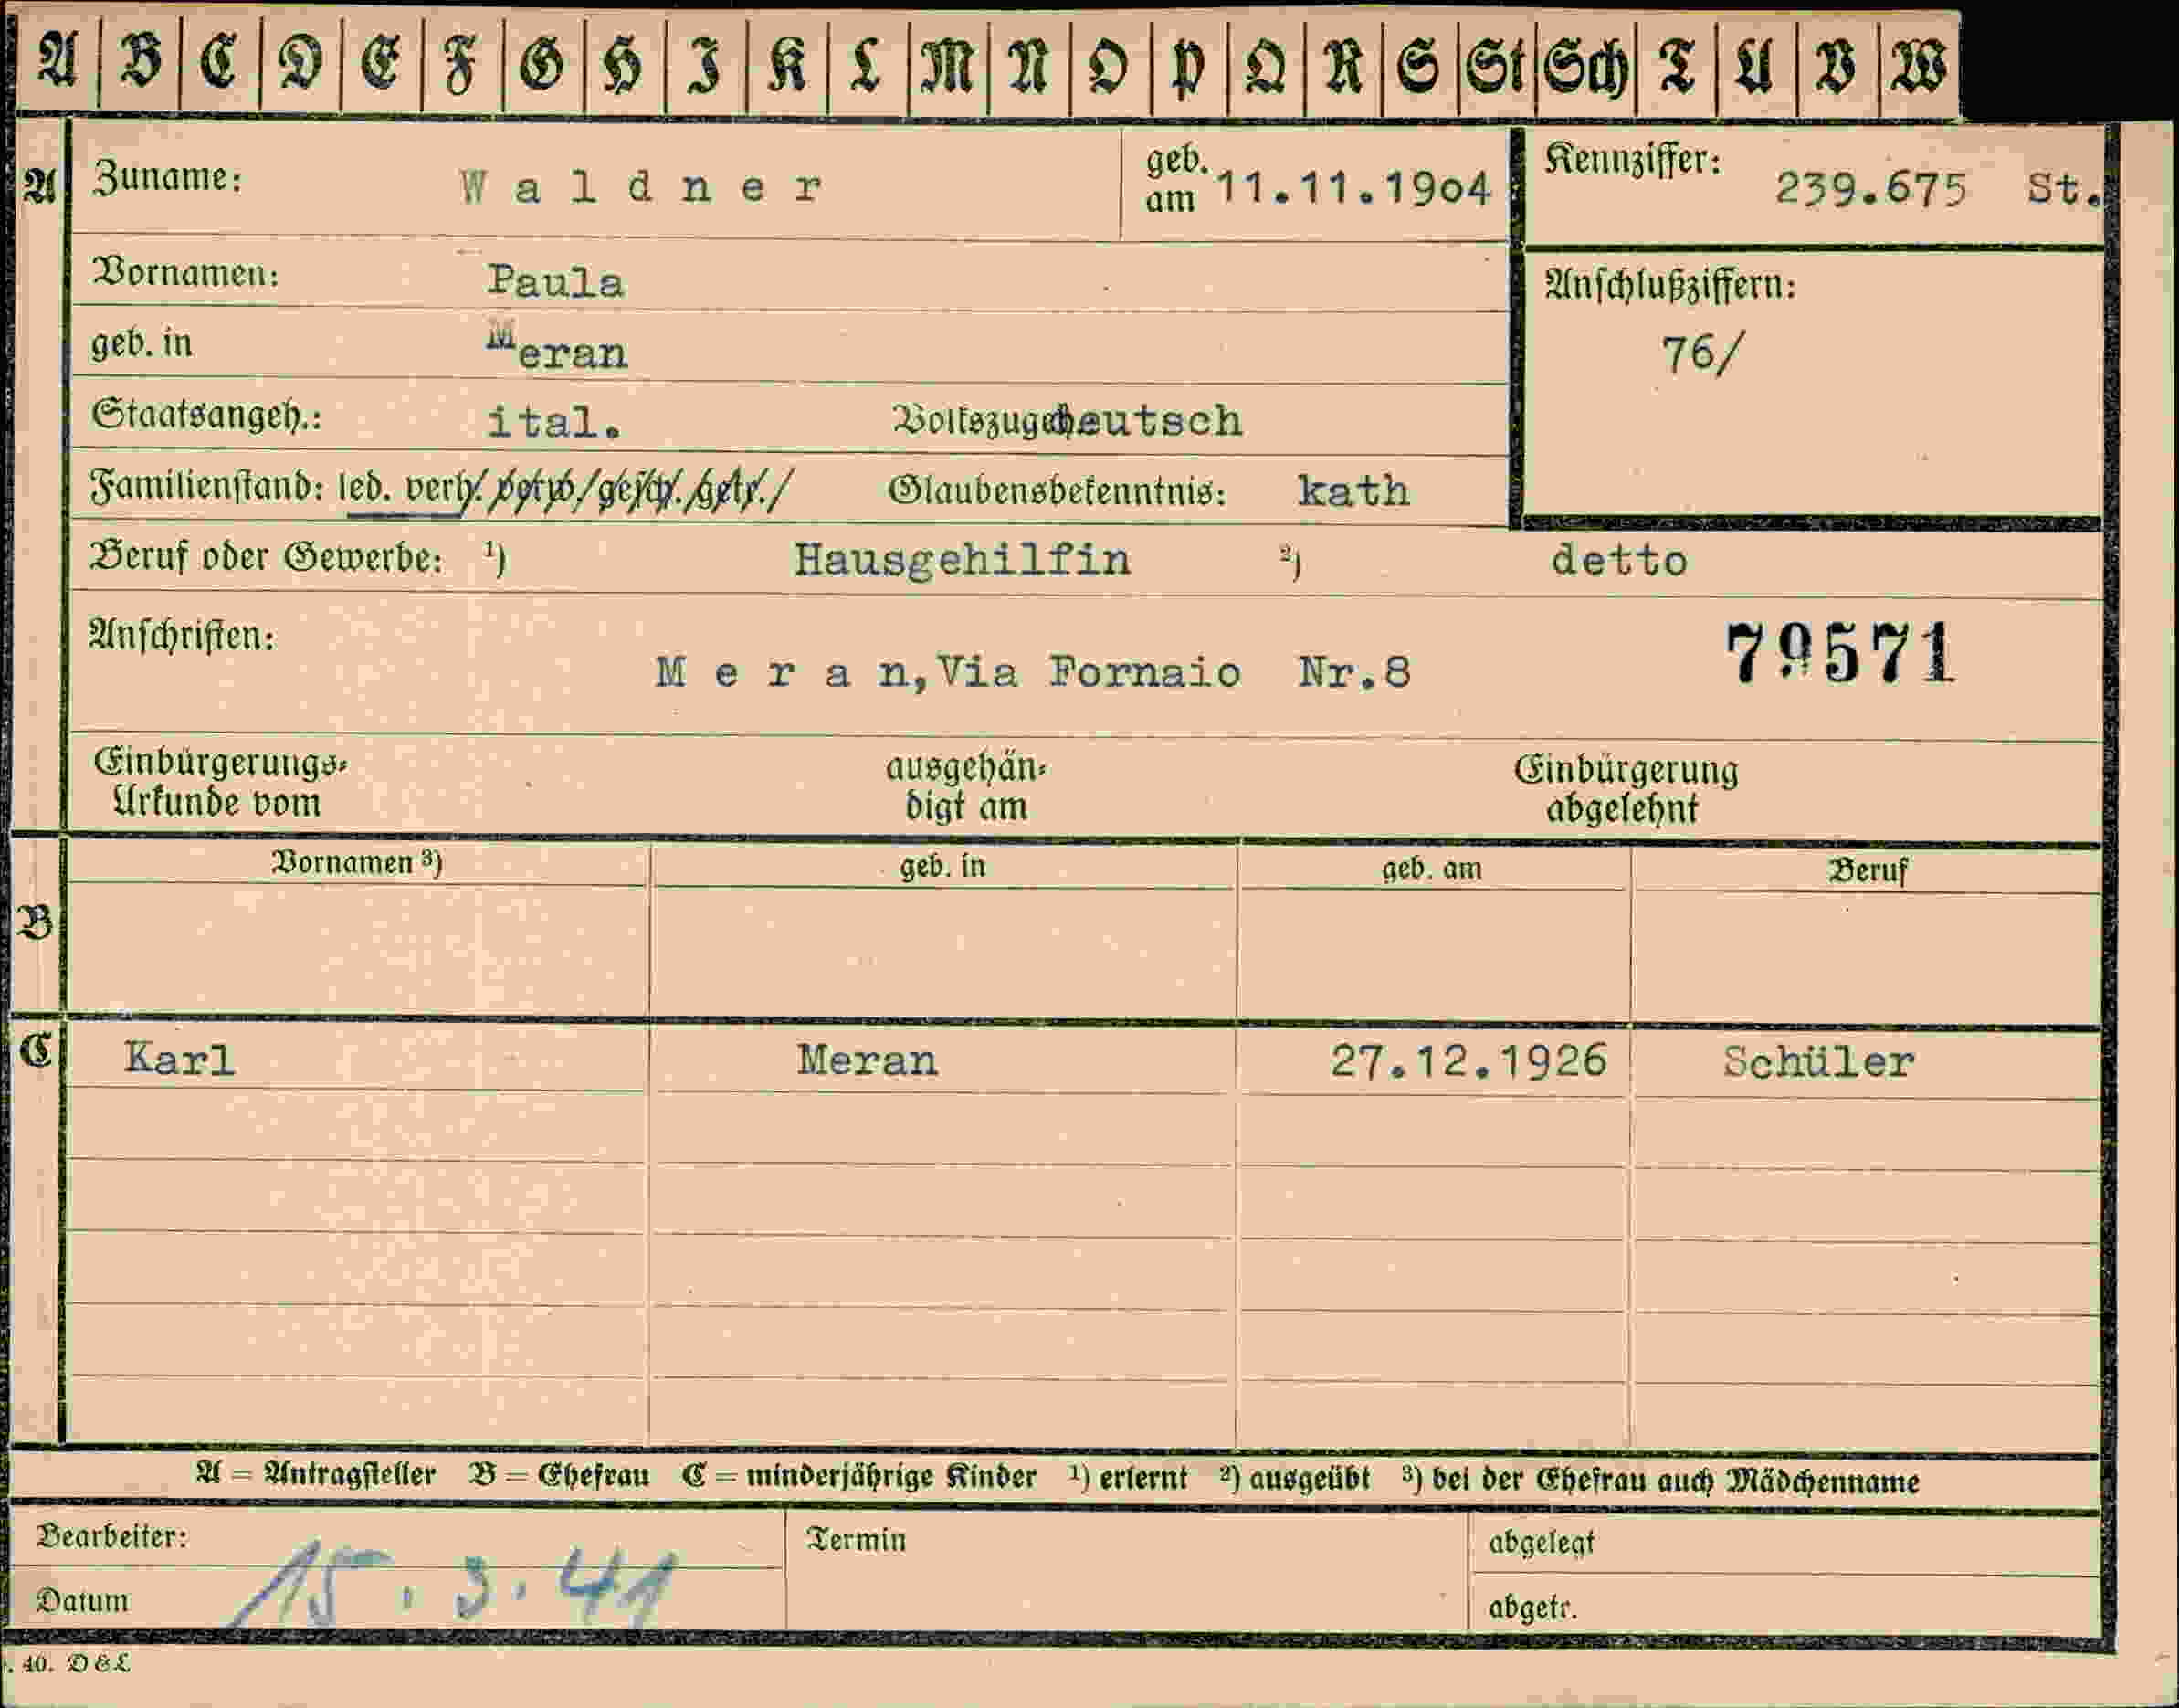 A B C D E F G H I K L M N O P Q R S St Sch T U V W
A Zuname: Waldner geb. am 11.11.1904 Kennziffer: 239.675 St.
Vornamen: Paula Anschlußziffern:
geb. in Meran 76/
Staatsangeh.: ital. Volkszugeh. deutsch
Familienstand: led. verh. verw./gesch./getr./ Glaubensbekenntnis: kath
Beruf oder Gewerbe: ¹) Hausgehilfin ²) detto
Anschriften: 79571
Meran, Via Fornaio Nr.8
Einbürgerungs= ausgehän= Einbürgerung
Urkunde vom digt am abgelehnt
Vornamen ³) geb. in geb. am Beruf
B
C Karl Meran 27.12.1926 Schüler
A = Antragsteller B = Ehefrau C = minderjährige Kinder ¹) erlernt ²) ausgeübt ³) bei der Ehefrau auch Mädchenname
Bearbeiter: Termin abgelegt
Datum 15.3.41 abgetr.
. 40. D&L